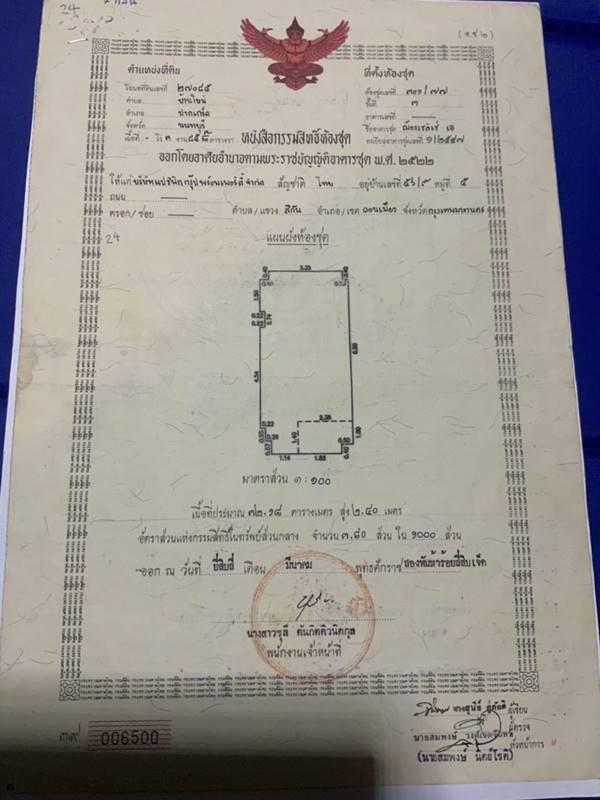 24
(อ.ช.๒)
ตำแหน่งที่ดิน
โฉนดที่ดินเลขที่ ๒๗๐๘๕
ตำบล บ้านใหม่
อำเภอ ปากเกร็ด
จังหวัด นนทบุรี
ที่ตั้งห้องชุด
ห้องชุดเลขที่ ๓๐๑/๗๗
ชั้นที่ ๓
อาคารเลขที่
ชื่ออาคารชุด
ทะเบียนอาคารชุดเลขที่ ๑/๒๕๔๗
หนังสือกรรมสิทธิ์ห้องชุด
ออกโดยอาศัยอำนาจตามพระราชบัญญัติอาคารชุด พ.ศ. ๒๕๒๒
ให้แก่ สัญชาติ ไทย อยู่บ้านเลขที่ ๕๖/๙ หมู่ที่ ๕
ถนน
ตรอก/ซอย ตำบล/แขวง สีกัน อำเภอ/เขต ดอนเมือง จังหวัดกรุงเทพมหานคร
24
แผนผังห้องชุด
1.50
0.74
4.54
6.80
2.38
1.40
1.00
1.14 1.88
มาตราส่วน ๑ : ๑๐๐
เนื้อที่ประมาณ ๓๒.๑๘ ตารางเมตร สูง ๒.๔๐ เมตร
อัตราส่วนแห่งกรรมสิทธิ์ในทรัพย์ส่วนกลาง จำนวน ๓.๘๐ ส่วน ใน ๑๐๐๐ ส่วน
ออก ณ วันที่ ยี่สิบสี่ เดือน มีนาคม พุทธศักราช สองพันห้าร้อยสี่สิบเจ็ด
พนักงานเจ้าหน้าที่
ผู้เขียน
ผู้ตรวจ
หัวหน้าการ
(นายสมพงษ์ นิตย์โชติ)
006500